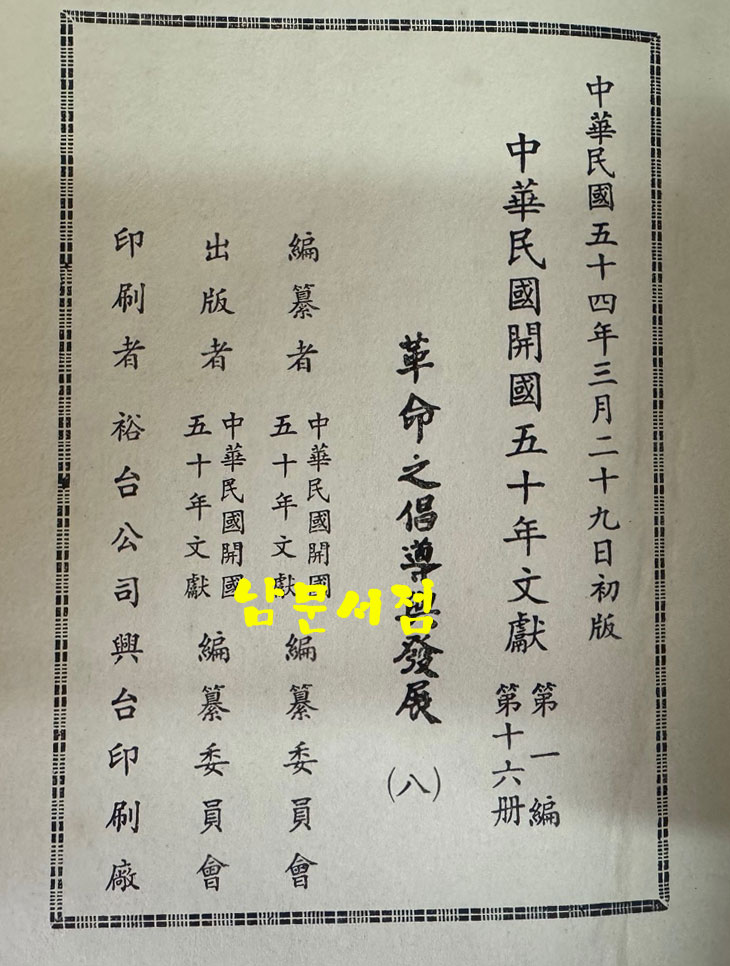 中華民國五十四年三月二十九日初版
中華民國開國五十年文獻
第一編
第十六册
革命之倡導與發展
(八)
編纂者
中華民國開國
五十年文獻
編纂委員會
出版者
中華民國開國
五十年文獻
編纂委員會
印刷者 裕台公司興台印刷廠
남문서점